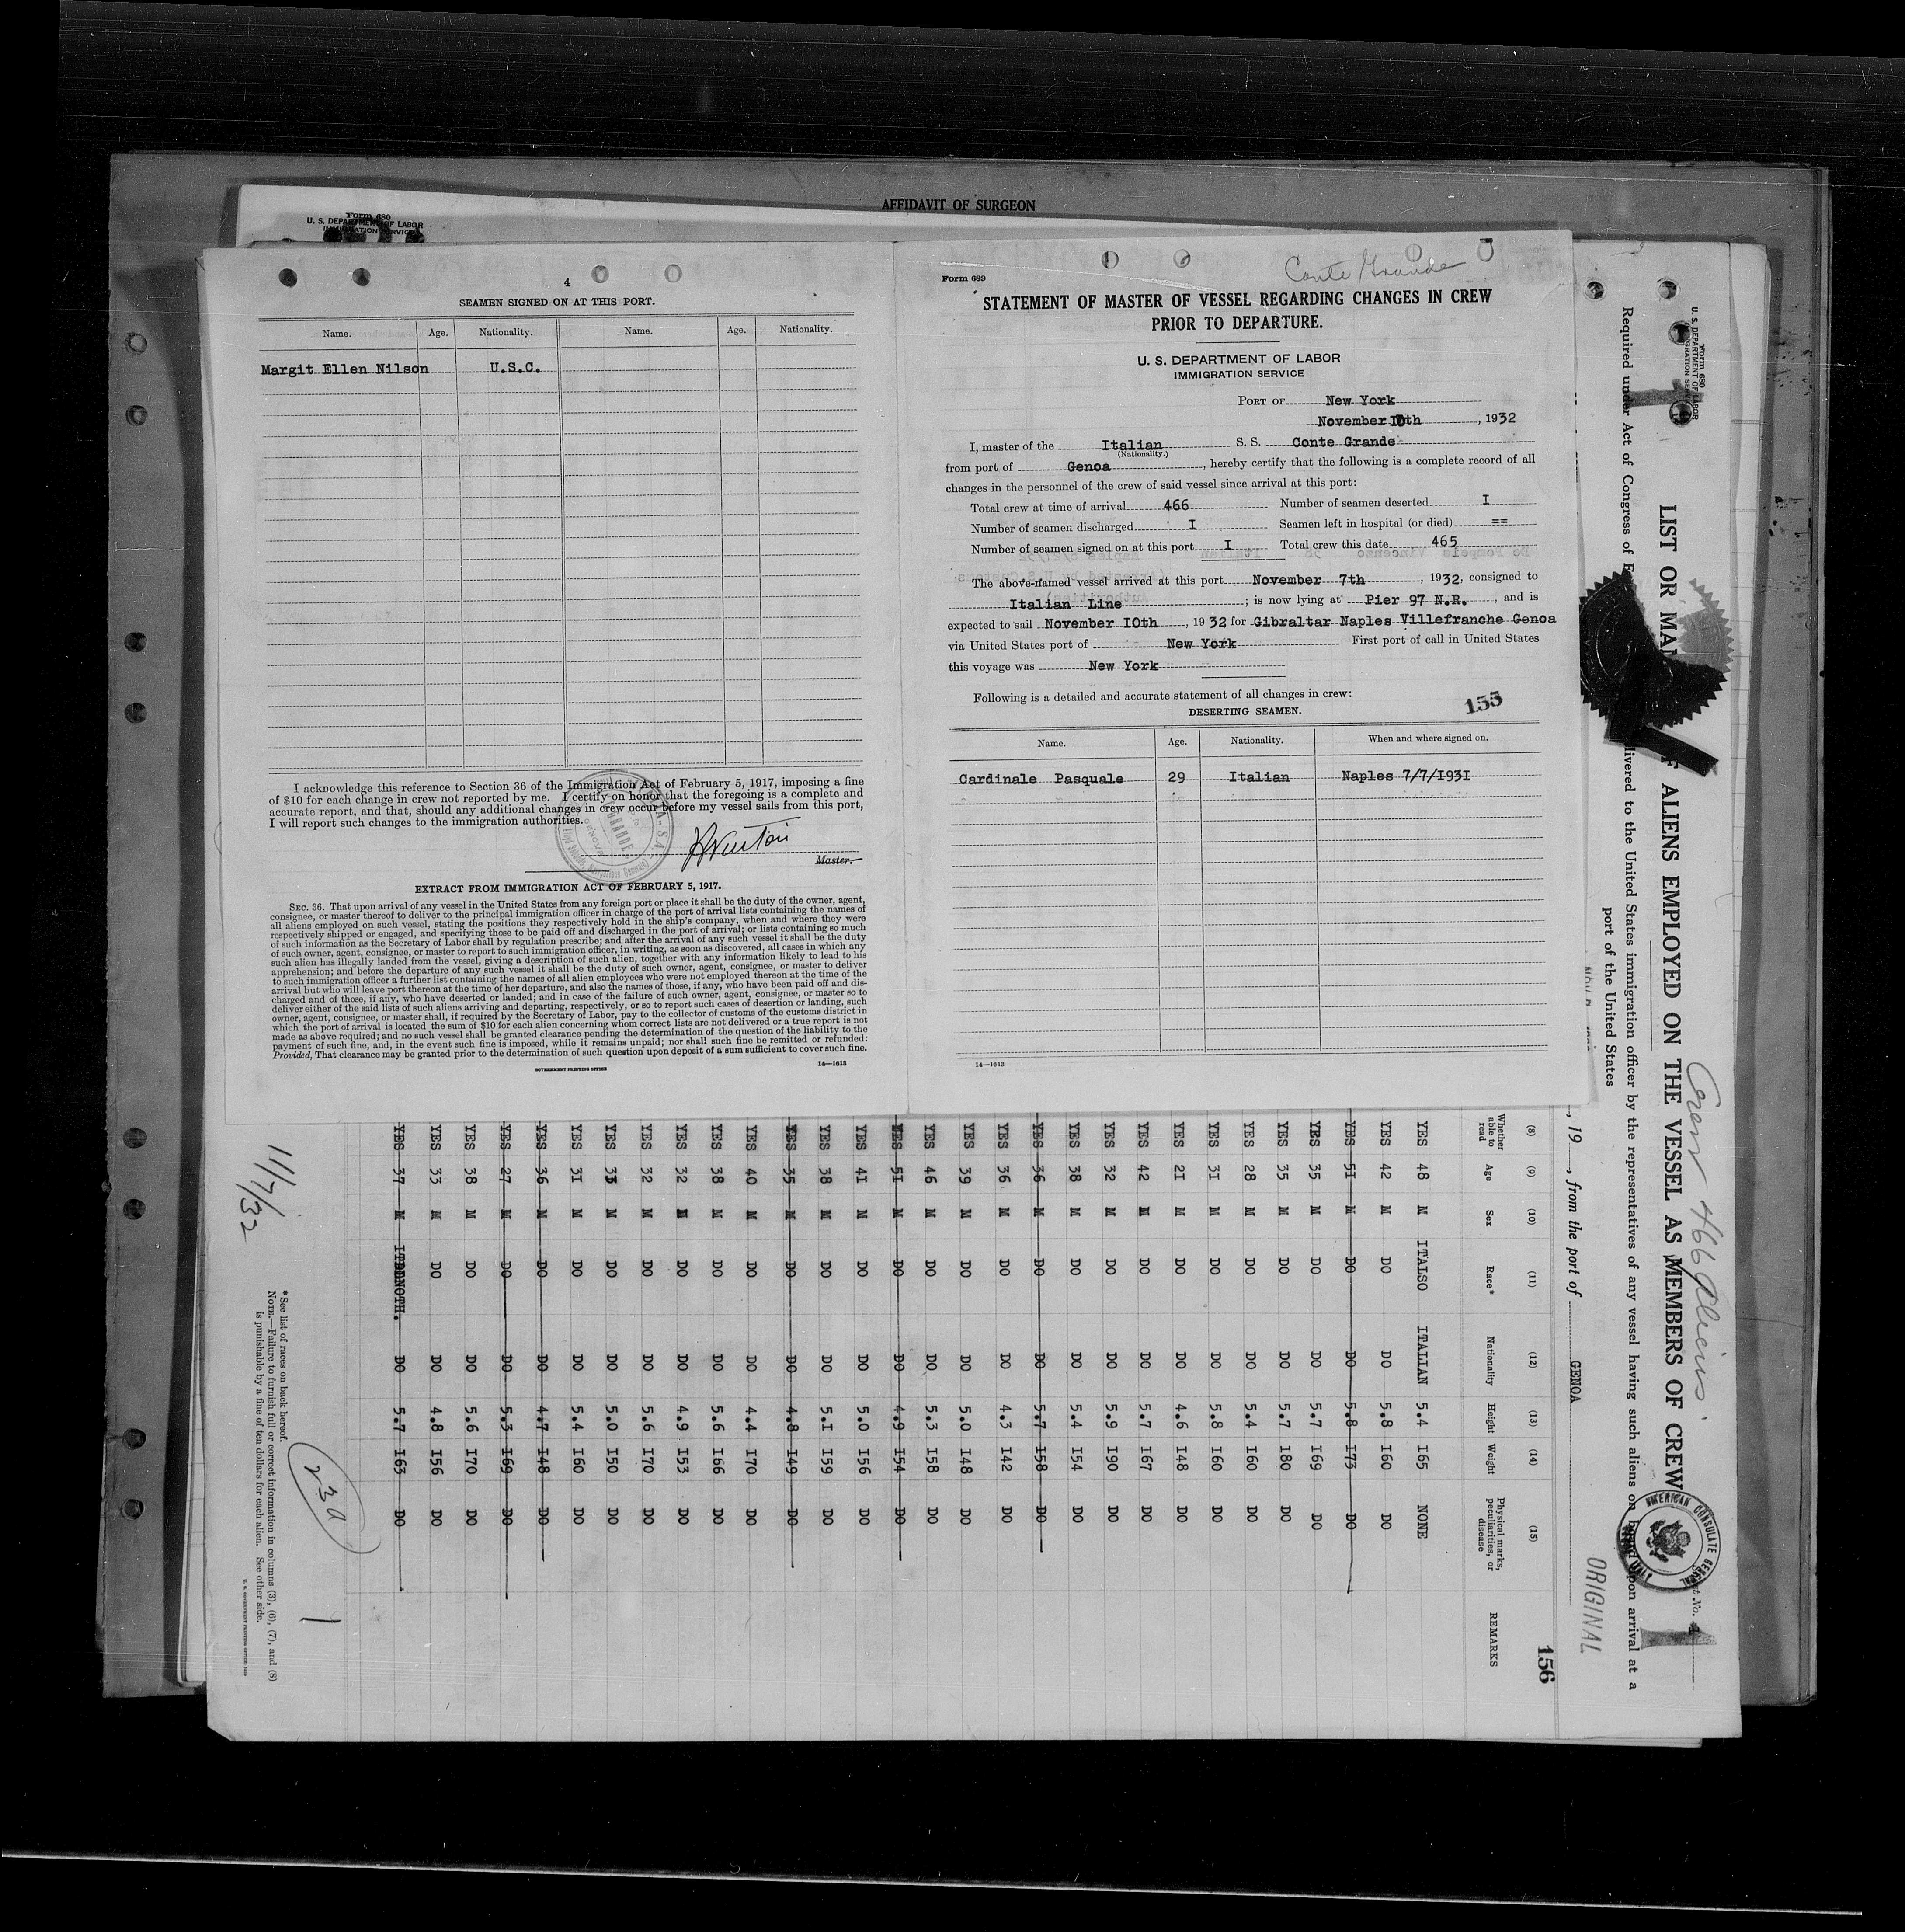 AFFIDAVIT OF SURGEON
Form 680
U. S. DEPARTMENT OF LABOR
IMMIGRATION SERVICE
4
SEAMEN SIGNED ON AT THIS PORT.
Name. Age. Nationality. Name. Age. Nationality.
Margit Ellen Nilson U.S.C.
I acknowledge this reference to Section 36 of the Immigration Act of February 5, 1917, imposing a fine
of $10 for each change in crew not reported by me. I certify on honor that the foregoing is a complete and
accurate report, and that, should any additional changes in crew occur before my vessel sails from this port,
I will report such changes to the immigration authorities.
Master.
EXTRACT FROM IMMIGRATION ACT OF FEBRUARY 5, 1917.
SEC. 36. That upon arrival of any vessel in the United States from any foreign port or place it shall be the duty of the owner, agent,
consignee, or master thereof to deliver to the principal immigration officer in charge of the port of arrival lists containing the names of
all aliens employed on such vessel, stating the positions they respectively hold in the ship's company, when and where they were
respectively shipped or engaged, and specifying those to be paid off and discharged in the port of arrival; or lists containing so much
of such information as the Secretary of Labor shall by regulation prescribe; and after the arrival of any such vessel it shall be the duty
of such owner, agent, consignee, or master to report to such immigration officer, in writing, as soon as discovered, all cases in which any
such alien has illegally landed from the vessel, giving a description of such alien, together with any information likely to lead to his
apprehension; and before the departure of any such vessel it shall be the duty of such owner, agent, consignee, or master to deliver
to such immigration officer a further list containing the names of all alien employees who were not employed thereon at the time of the
arrival but who will leave port thereon at the time of her departure, and also the names of those, if any, who have been paid off and dis-
charged and of those, if any, who have deserted or landed; and in case of the failure of such owner, agent, consignee, or master so to
deliver either of the said lists of such aliens arriving and departing, respectively, or so to report such cases of desertion or landing, such
owner, agent, consignee, or master shall, if required by the Secretary of Labor, pay to the collector of customs of the customs district in
which the port of arrival is located the sum of $10 for each alien concerning whom correct lists are not delivered or a true report is not
made as above required; and no such vessel shall be granted clearance pending the determination of the question of the liability to the
payment of such fine, and, in the event such fine is imposed, while it remains unpaid; nor shall such fine be remitted or refunded:
Provided, That clearance may be granted prior to the determination of such question upon deposit of a sum sufficient to cover such fine.
GOVERNMENT PRINTING OFFICE 14—1613
Conte Grande
Form 689
STATEMENT OF MASTER OF VESSEL REGARDING CHANGES IN CREW
PRIOR TO DEPARTURE.
U. S. DEPARTMENT OF LABOR
IMMIGRATION SERVICE
PORT OF New York
November 10th, 1932
I, master of the Italian S. S. Conte Grande
(Nationality.)
from port of Genoa, hereby certify that the following is a complete record of all
changes in the personnel of the crew of said vessel since arrival at this port:
Total crew at time of arrival 466 Number of seamen deserted I
Number of seamen discharged I Seamen left in hospital (or died) ==
Number of seamen signed on at this port I Total crew this date 465
The above-named vessel arrived at this port November 7th, 1932, consigned to
Italian Line; is now lying at Pier 97 N.R., and is
expected to sail November IOth, 1932 for Gibraltar Naples Villefranche Genoa
via United States port of New York First port of call in United States
this voyage was New York
Following is a detailed and accurate statement of all changes in crew:
155
DESERTING SEAMEN.
Name. Age. Nationality. When and where signed on.
Cardinale Pasquale 29 Italian Naples 7/7/I93I
14—1613
Form 680
U. S. DEPARTMENT OF LABOR
LIST OR MAN F ALIENS EMPLOYED ON THE VESSEL AS MEMBERS OF CREW
Required under Act of Congress of livered to the United States immigration officer by the representatives of any vessel having such aliens on board upon arrival at a
port of the United States
Crew 466 Aliens
AMERICAN CONSULATE GENERAL
ORIGINAL
, 19 , from the port of GENOA
156
(8) (9) (10) (11) (12) (13) (14) (15)
Whether able to read Age Sex Race* Nationality Height Weight Physical marks, peculiarities, or disease REMARKS
YES 48 M ITALSO ITALIAN 5.4 I65 NONE
YES 42 M DO DO 5.8 I60 DO
YES 5I M DO DO 5.8 I73 DO
YES 35 M DO DO 5.7 I69 DO
YES 35 M DO DO 5.7 I80 DO
YES 28 M DO DO 5.4 I60 DO
YES 3I M DO DO 5.8 I60 DO
YES 2I M DO DO 4.6 I48 DO
YES 42 M DO DO 5.7 I67 DO
YES 32 M DO DO 5.9 I90 DO
YES 38 M DO DO 5.4 I54 DO
YES 36 M DO DO 5.7 I58 DO
YES 36 M DO DO 4.3 I42 DO
YES 39 M DO DO 5.0 I48 DO
YES 46 M DO DO 5.3 I58 DO
YES 5I M DO DO 4.9 I54 DO
YES 4I M DO DO 5.0 I56 DO
YES 38 M DO DO 5.I I59 DO
YES 35 M DO DO 4.8 I49 DO
YES 40 M DO DO 4.4 I70 DO
YES 38 M DO DO 5.6 I66 DO
YES 32 M DO DO 4.9 I53 DO
YES 32 M DO DO 5.6 I70 DO
YES 33 M DO DO 5.0 I50 DO
YES 3I M DO DO 5.4 I60 DO
YES 36 M DO DO 4.7 I48 DO
YES 27 M DO DO 5.3 I69 DO
YES 38 M DO DO 5.6 I70 DO
YES 33 M DO DO 4.8 I56 DO
YES 37 M DO 5.7 I63 DO
*See list of races on back hereof.
NOTE.—Failure to furnish full or correct information in columns (3), (6), (7), and (8)
is punishable by a fine of ten dollars for each alien. See other side.
11/7/32
1